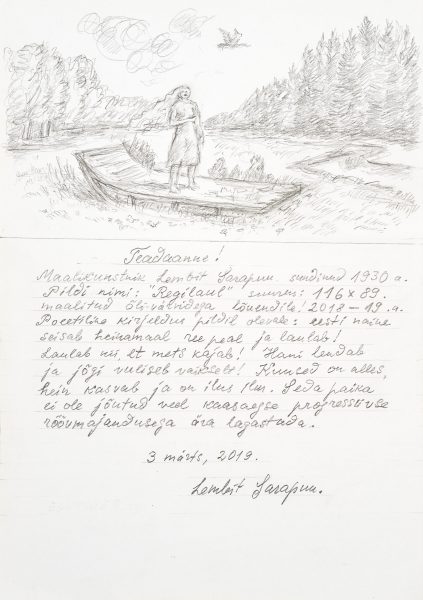 Teadaanne!
Maalikunstnik Lembit Sarapuu sündinud 1930 a.
Pildi nimi: "Regilaul" suurus: 116 x 89.
maalitud õlivärvidega lõuendile! 2018 – 19. a.
Poeetiline kirjeldus pildil olevale: eesti naine
seisab heinamaal ree peal ja laulab!
Laulab nii, et mets kajab! Hani lendab
ja jõgi vuliseb vaikselt! Kuused on alles,
hein kasvab ja on ilus ilm. Seda paika
ei ole jõutud veel kaasaegse progressiivse
röövmajandusega ära lagastada.
3 märts, 2019.
Lembit Sarapuu.